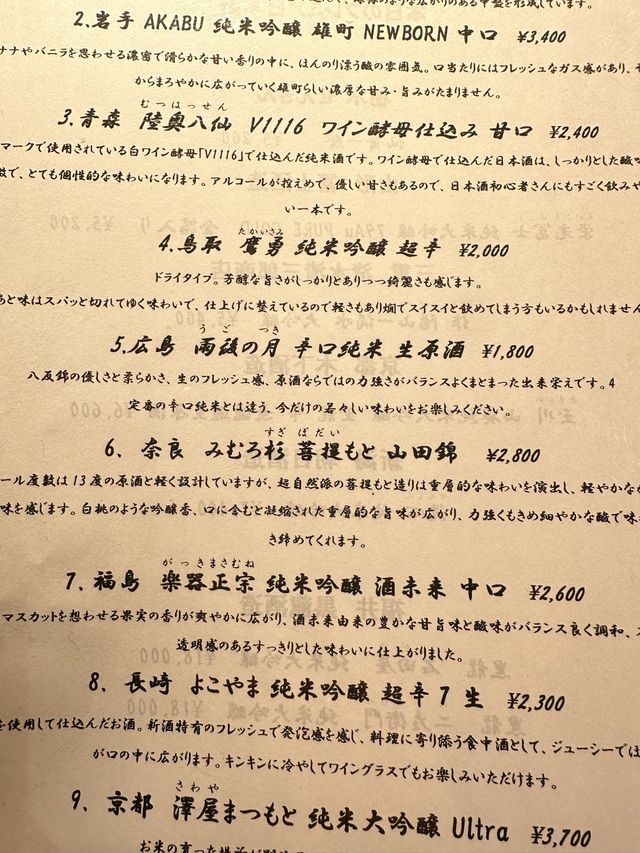 球体のような広がりのある中盤を形成しています。
2.岩手 AKABU 純米吟醸 雄町 NEWBORN 中口 ¥3,400
ナナやバニラを思わせる濃密で滑らかな甘い香りの中に、ほんのり漂う酸の雰囲気。口当たりにはフレッシュなガス感があり、そ
からまろやかに広がっていく雄町らしい濃厚な甘み・旨みがたまりません。
むつはっせん
3.青森 陸奥八仙 V1116 ワイン酵母仕込み 甘口 ¥2,400
マークで使用されている白ワイン酵母「V1116」で仕込んだ純米酒です。ワイン酵母で仕込んだ日本酒は、しっかりとした酸味
徴で、とても個性的な味わいになります。アルコールが控えめで、優しい甘さもあるので、日本酒初心者さんにもすごく飲みや
い一本です。
たかいさみ
4.鳥取 鷹勇 純米吟醸 超辛 ¥2,000
ドライタイプ。芳醇な旨さがしっかりとありつつ綺麗さも感じます。
あと味はスパッと切れてゆく味わいで、仕上げに整えているので軽さもあり燗でスイスイと飲めてしまう方もいるかもしれません
うご つき
5.広島 雨後の月 辛口純米 生原酒 ¥1,800
八反錦の優しさと柔らかさ、生のフレッシュ感、原酒ならではの力強さがバランスよくまとまった出来栄えです。4
定番の辛口純米とは違う、今だけの若々しい味わいをお楽しみください。
すぎ ぼだい
6. 奈良 みむろ杉 菩提もと 山田錦 ¥2,800
ール度数は13度の原酒と軽く設計していますが、超自然派の菩提もと造りは重層的な味わいを演出し、軽やかなが
味を感じます。白桃のような吟醸香、口に含むと凝縮された重層的な旨味が広がり、力強くもきめ細やかな酸で味
き締めてくれます。
がっきまさむね
7. 福島 楽器正宗 純米吟醸 酒未来 中口 ¥2,600
マスカットを想わせる果実の香りが爽やかに広がり、酒未来由来の豊かな甘旨味と酸味がバランス良く調和、ス
透明感のあるすっきりとした味わいに仕上がりました。
8. 長崎 よこやま 純米吟醸 超辛7 生 ¥2,300
を使用して仕込んだお酒。新酒特有のフレッシュで発泡感を感じ、料理に寄り添う食中酒として、ジューシーでほ
が口の中に広がります。キンキンに冷やしてワイングラスでもお楽しみいただけます。
さわや
9. 京都 澤屋まつもと 純米大吟醸 Ultra ¥3,700
お米の育った場所が